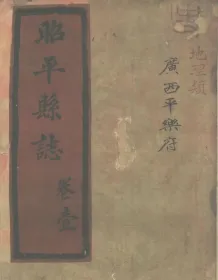 地理類
廣西平樂府
昭平縣誌
卷壹